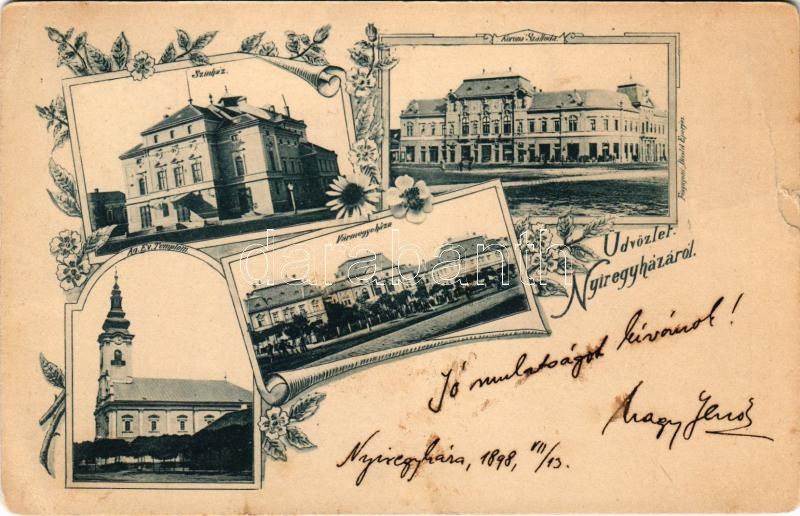 Színház.
Korona Szálloda.
Fénynyomat, Divald Eperjes.
Vármegyeháza
Ág. Ev. Templom.
Üdvözlet
Nyíregyházáról.
darabanth
Jó mulatságot kívánok!
Nagy Jenő
Nyiregyháza, 1898, VII/13.